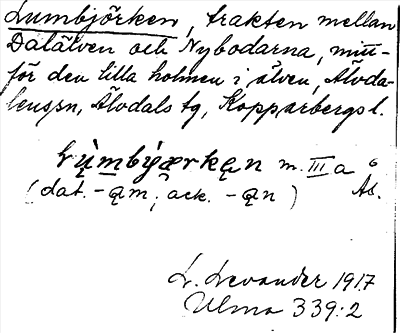 Lumbjörken, trakten mellan
Dalälven och Nybodarna, mitt-
för den lilla holmen i älven, Älvda-
lens sn, Älvdals tg, Kopparbergs l.
m. III a
(dat. -ąm; ack. -ąn)
Äs.
L. Levander 1917
Ulma 339:2